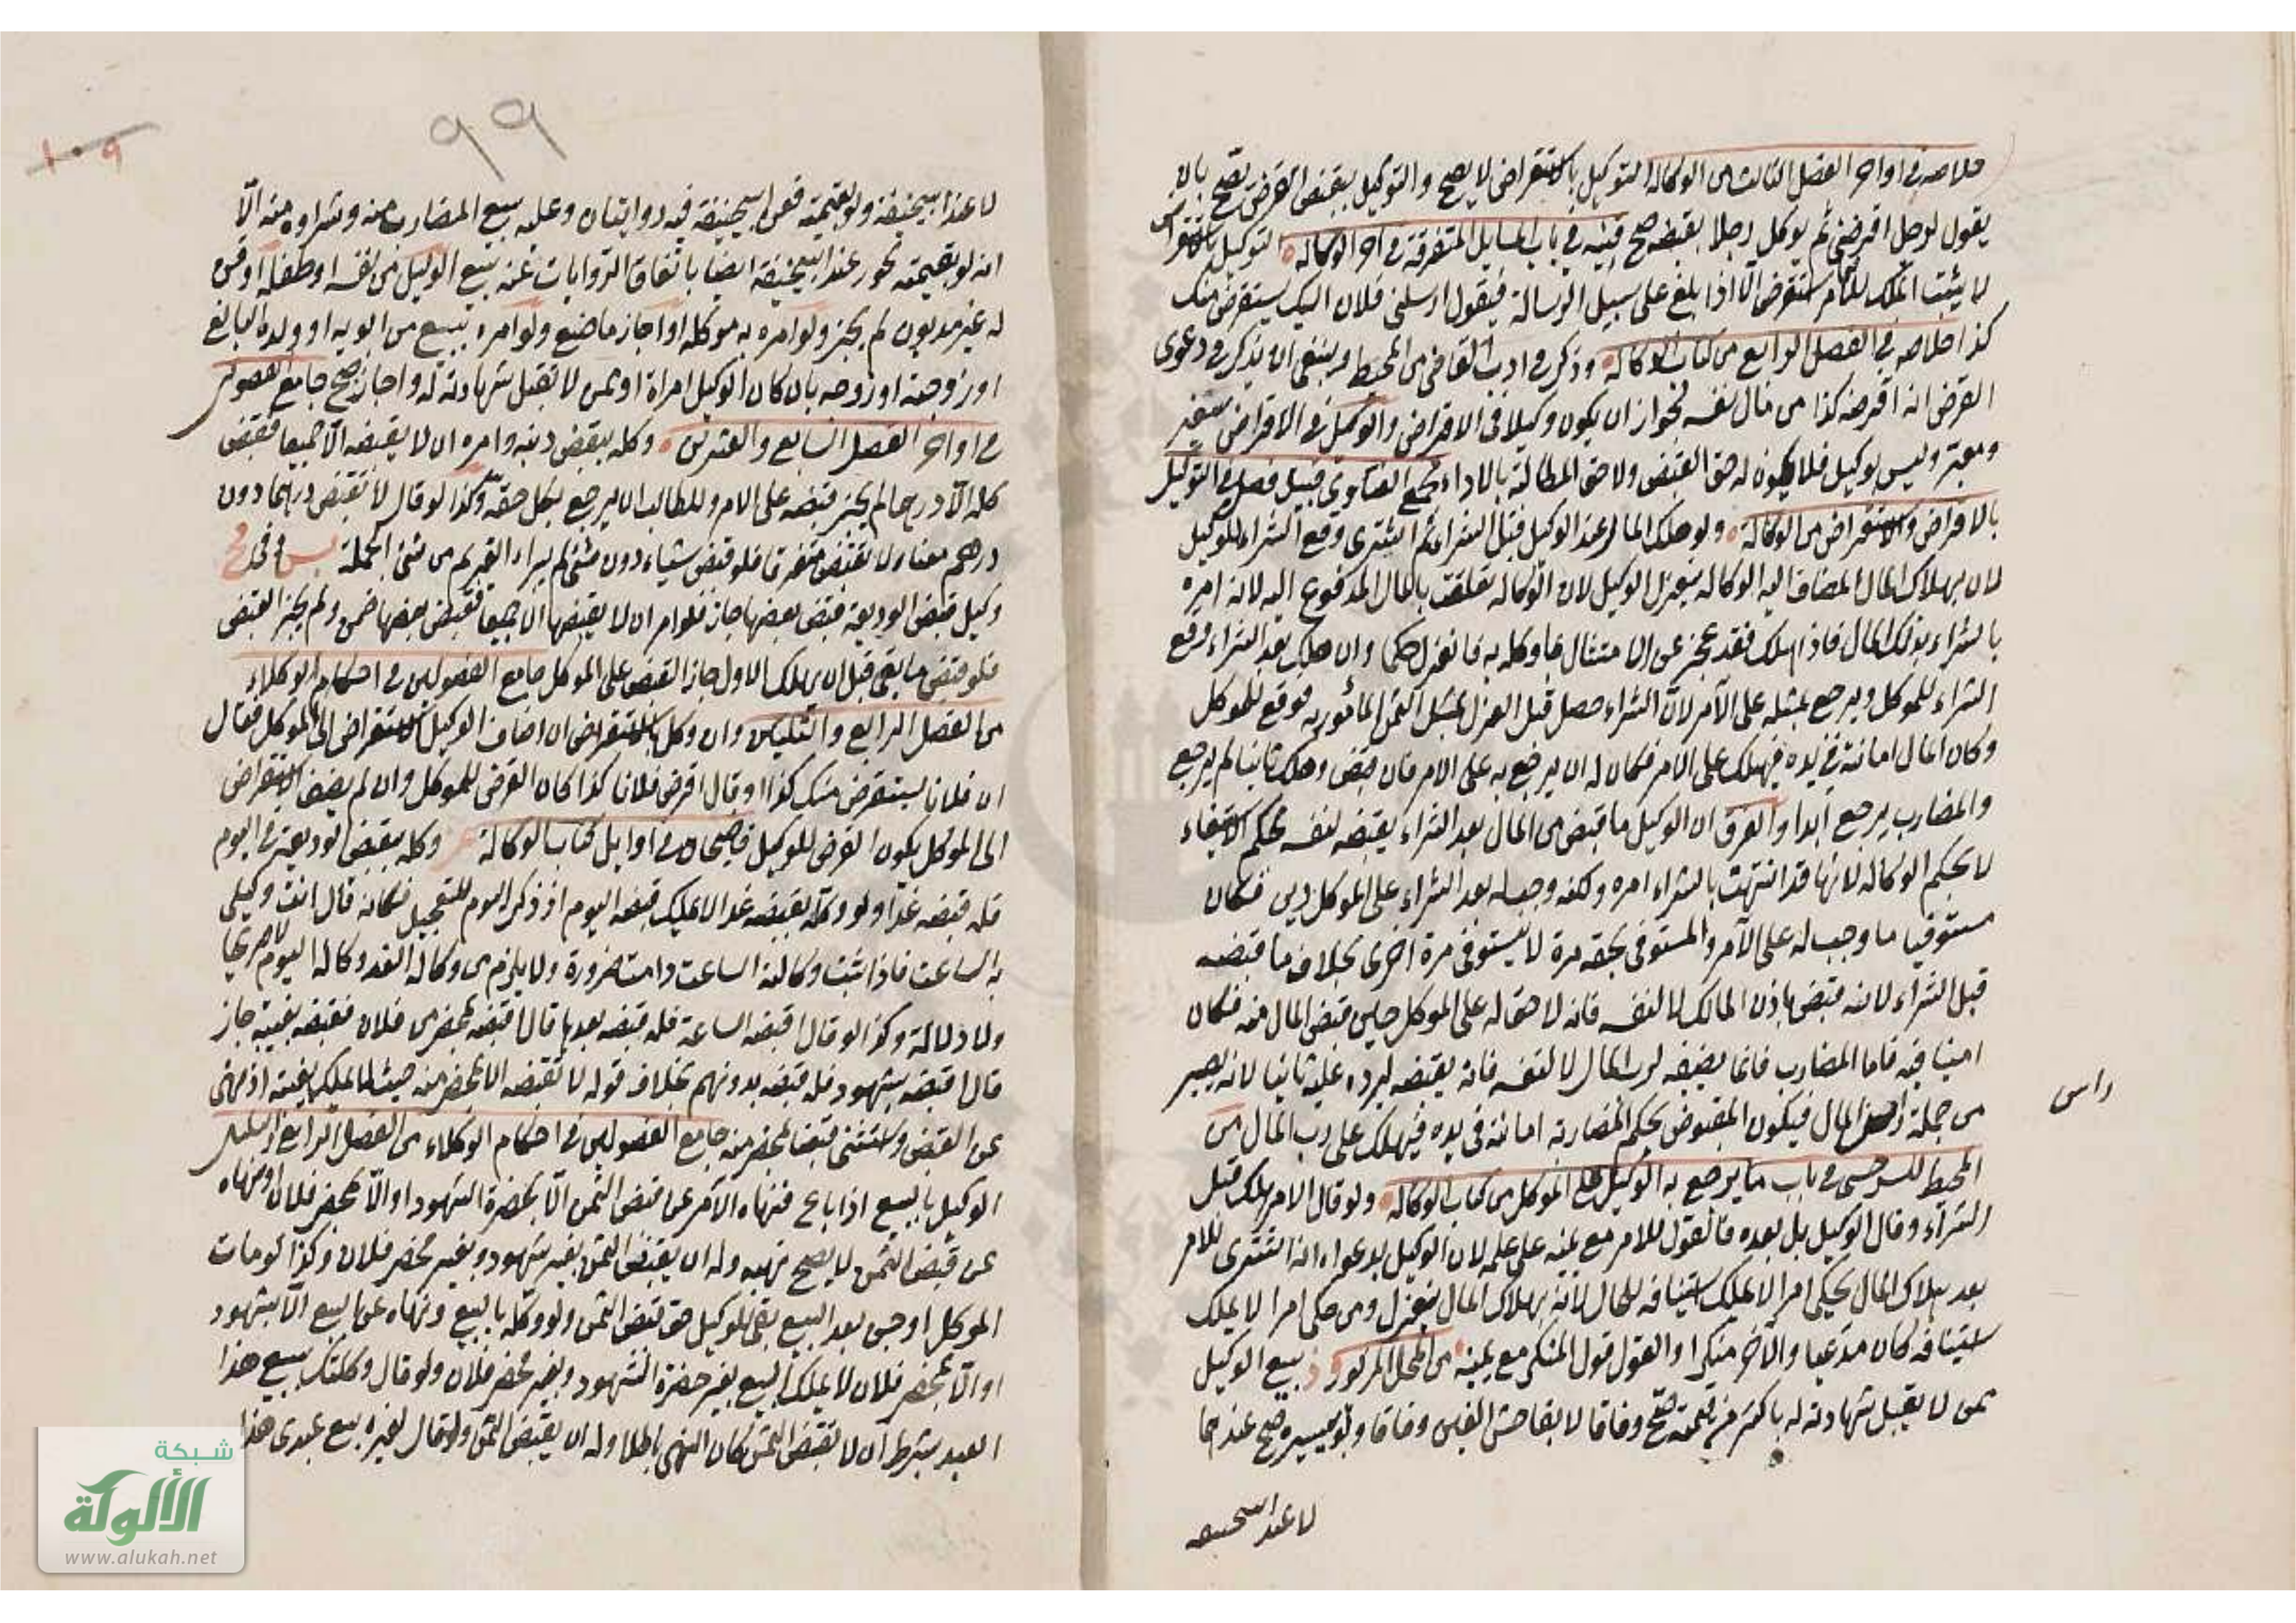 خلاصه في اواخر الفصل الثالث من الوكالة التوكيل بالاستقراض لا يصح والتوكيل بقبض القرض يصح بان
يقول لرجل اقرضني ثم يوكل رجلا بقبضه صح قنيه في باب المسايل المتفرقة في اخر الوكاله التوكيل بالاستقراض
لا يثبت الملك للآمر استقرض الا اذا بلغ على سبيل الرسالة فيقول ارسلني فلان اليك يستقرض منك
كذا خلاصه في الفصل الرابع من كتاب الوكاله وذكر في ادب القاضي من المحيط وينبغي ان يذكر في دعوى
القرض انه اقرضه كذا من مال نفسه لجواز ان يكون وكيلا في الاقراض والوكيل في الاقراض سفير
ومعبر وليس بوكيل فلا يكون له حق القبض ولا حق المطالبة بالاداء مجمع الفتاوى قبيل فصل في التوكيل
بالاقراض والاستقراض من الوكالة ولو هلك المال عند الوكيل قبل الشراء ثم اشترى وقع الشراء للوكيل
لان بهلاك المال المضاف اليه الوكاله ينعزل الوكيل لان الوكاله تعلقت بالمال المدفوع اليه لانه امره
بالشراء بذلك المال فاذا هلك فقد عجز عن الامتثال عما وكله به فانعزل حكما وان هلك بعد الشراء وقع
الشراء للموكل ويرجع بمثله على الآمر لان الشراء حصل قبل العزل بمثل الثمن المأمور به فوقع للموكل
وكان المال امانة في يده فيهلك على الامر فكان له ان يرجع به على الامر فان قبض وهلك ثانيا لم يرجع
والمضارب يرجع ابدا والفرق ان الوكيل ما قبض من المال بعد الشراء يقبضه لنفسه بحكم الاستيفاء
لا بحكم الوكاله لانها قد انتهت بالشراء امره ولكنه وجب له بعد الشراء على الموكل دين فكان
مستوفيا ما وجب له على الآمر والمستوفي بحقه مرة لا يستوفى مرة اخرى بخلاف ما قبضه
قبل الشراء لانه قبض باذن المالك لا لنفسه فانه لا حق له على الموكل حين قبض المال منه فكان
امينا فيه فاما المضارب فانما يقبضه لرب المال لا لنفسه فانه يقبضه ليرده عليه ثانيا لانه يصير
من جملة رأس المال فيكون المقبوض بحكم المضاربة امانة في يده فيهلك على رب المال من
راس
المحيط للسرخسي في باب ما يرجع به الوكيل على الموكل من كتاب الوكاله ولو قال الامر هلك قبل
الشراء وقال الوكيل بل بعده فالقول للامر مع يمينه على علمه لان الوكيل بدعواه انه اشترى للامر
بعد هلاك المال يحكي امرا لا يملك استينافه للحال لانه بهلاك المال ينعزل ومن حكى امرا لا يملك
استينافه كان مدعيا والآخر منكرا والقول قول المنكر مع يمينه من المحل المزبور بيع الوكيل
ممن لا يقبل شهادته له باكثر من قيمته صح وفاقا لا بفاحش الغبن وفاقا ولو بيسيره صح عندهما
لا عند ابيحنيفه
٩٩
١٠٩
لا عند ابيحنيفة ولو بقيمته فعن ابيحنيفة فيه روايتان وعليه بيع المضارب منه وشراوه منه الا
انه لو بقيمته يجوز عند ابيحنيفة ايضا باتفاق الروايات عنه بيع الوكيل من نفسه او طفله او قن
له غير مديون لم يجز ولو امره به موكله او اجاز ما صنع ولو امره ببيع من ابويه او ولده البالغ
او زوجته او زوجه بان كان الوكيل امراة او ممن لا تقبل شهادته له واجاز صح جامع الفصولين
في اواخر الفصل السابع والعشرين وكله بقبض دينه وامره ان لا يقبضه الا جميعا فقبض
كله الا درهما لم يجز قبضه على الامر وللطالب ان يرجع بكل حقه وكذا لو قال لا تقبض درهما دون
درهم معناه لا تقبض متفرقا فلو قبض شياء دون شئ لم يبراء الغريم من شئ الجملة
وكيل قبض الوديعة قبض بعضها جاز فلو امر ان لا يقبضها الا جميعا فقبض بعضها ضمن ولم يجز القبض
فلو قبض ما بقي قبل ان يهلك الاول جاز القبض على الموكل جامع الفصولين في احكام الوكلاء
من الفصل الرابع والثلثين وان وكل بالاستقراض ان اضاف الوكيل الاستقراض الى الموكل فقال
ان فلانا يستقرض منك كذا او قال اقرض فلانا كذا كان القرض للموكل وان لم يضف الاستقراض
الى الموكل يكون القرض للوكيل قاضيخان في اوايل كتاب الوكالة وكله بقبض الوديعة في اليوم
فله قبضه غدا ولو وكله بقبضه غدا لا يملك قبضه اليوم اذ ذكر اليوم للتعجيل فكانه قال انت وكيلي
به الساعت فاذا ثبت وكالته الساعت دامت ضرورة ولا يلزم من وكالة الغد وكالة اليوم لا صريحا
ولا دلالة وكذا لو قال اقبضه الساعة فله قبضه بعدها قال اقبضه بمحضر من فلان فقبضه بغيبته جاز
قال اقبضه بشهود فله قبضه بدونهم بخلاف قوله لا تقبضه الا بمحضر منه حيث لا يملك بغيبته اذ نهى
عن القبض واستثنى قبضا بمحضر منه جامع الفصولين في احكام الوكلاء من الفصل الرابع والثلثين
الوكيل بالبيع اذا باع فنهاه الآمر عن قبض الثمن الا بحضرة الشهود او الا بمحضر فلان او نهاه
عن قبض الثمن لا يصح نهيه وله ان يقبض الثمن بغير شهود وبغير محضر فلان وكذا لو مات
الموكل او جن بعد البيع بقي للوكيل حق قبض الثمن ولو وكله بالبيع ونهاه عن البيع الا بشهود
او الا بمحضر فلان لا يملك البيع بغير حضرة الشهود وبغير محضر فلان ولو قال وكلتك ببيع هذا
العبد بشرط ان لا تقبض الثمن كان النهي باطلا وله ان يقبض الثمن ولو قال لغيره بيع عبدي هذا
شبكة
الألوكة
www.alukah.net